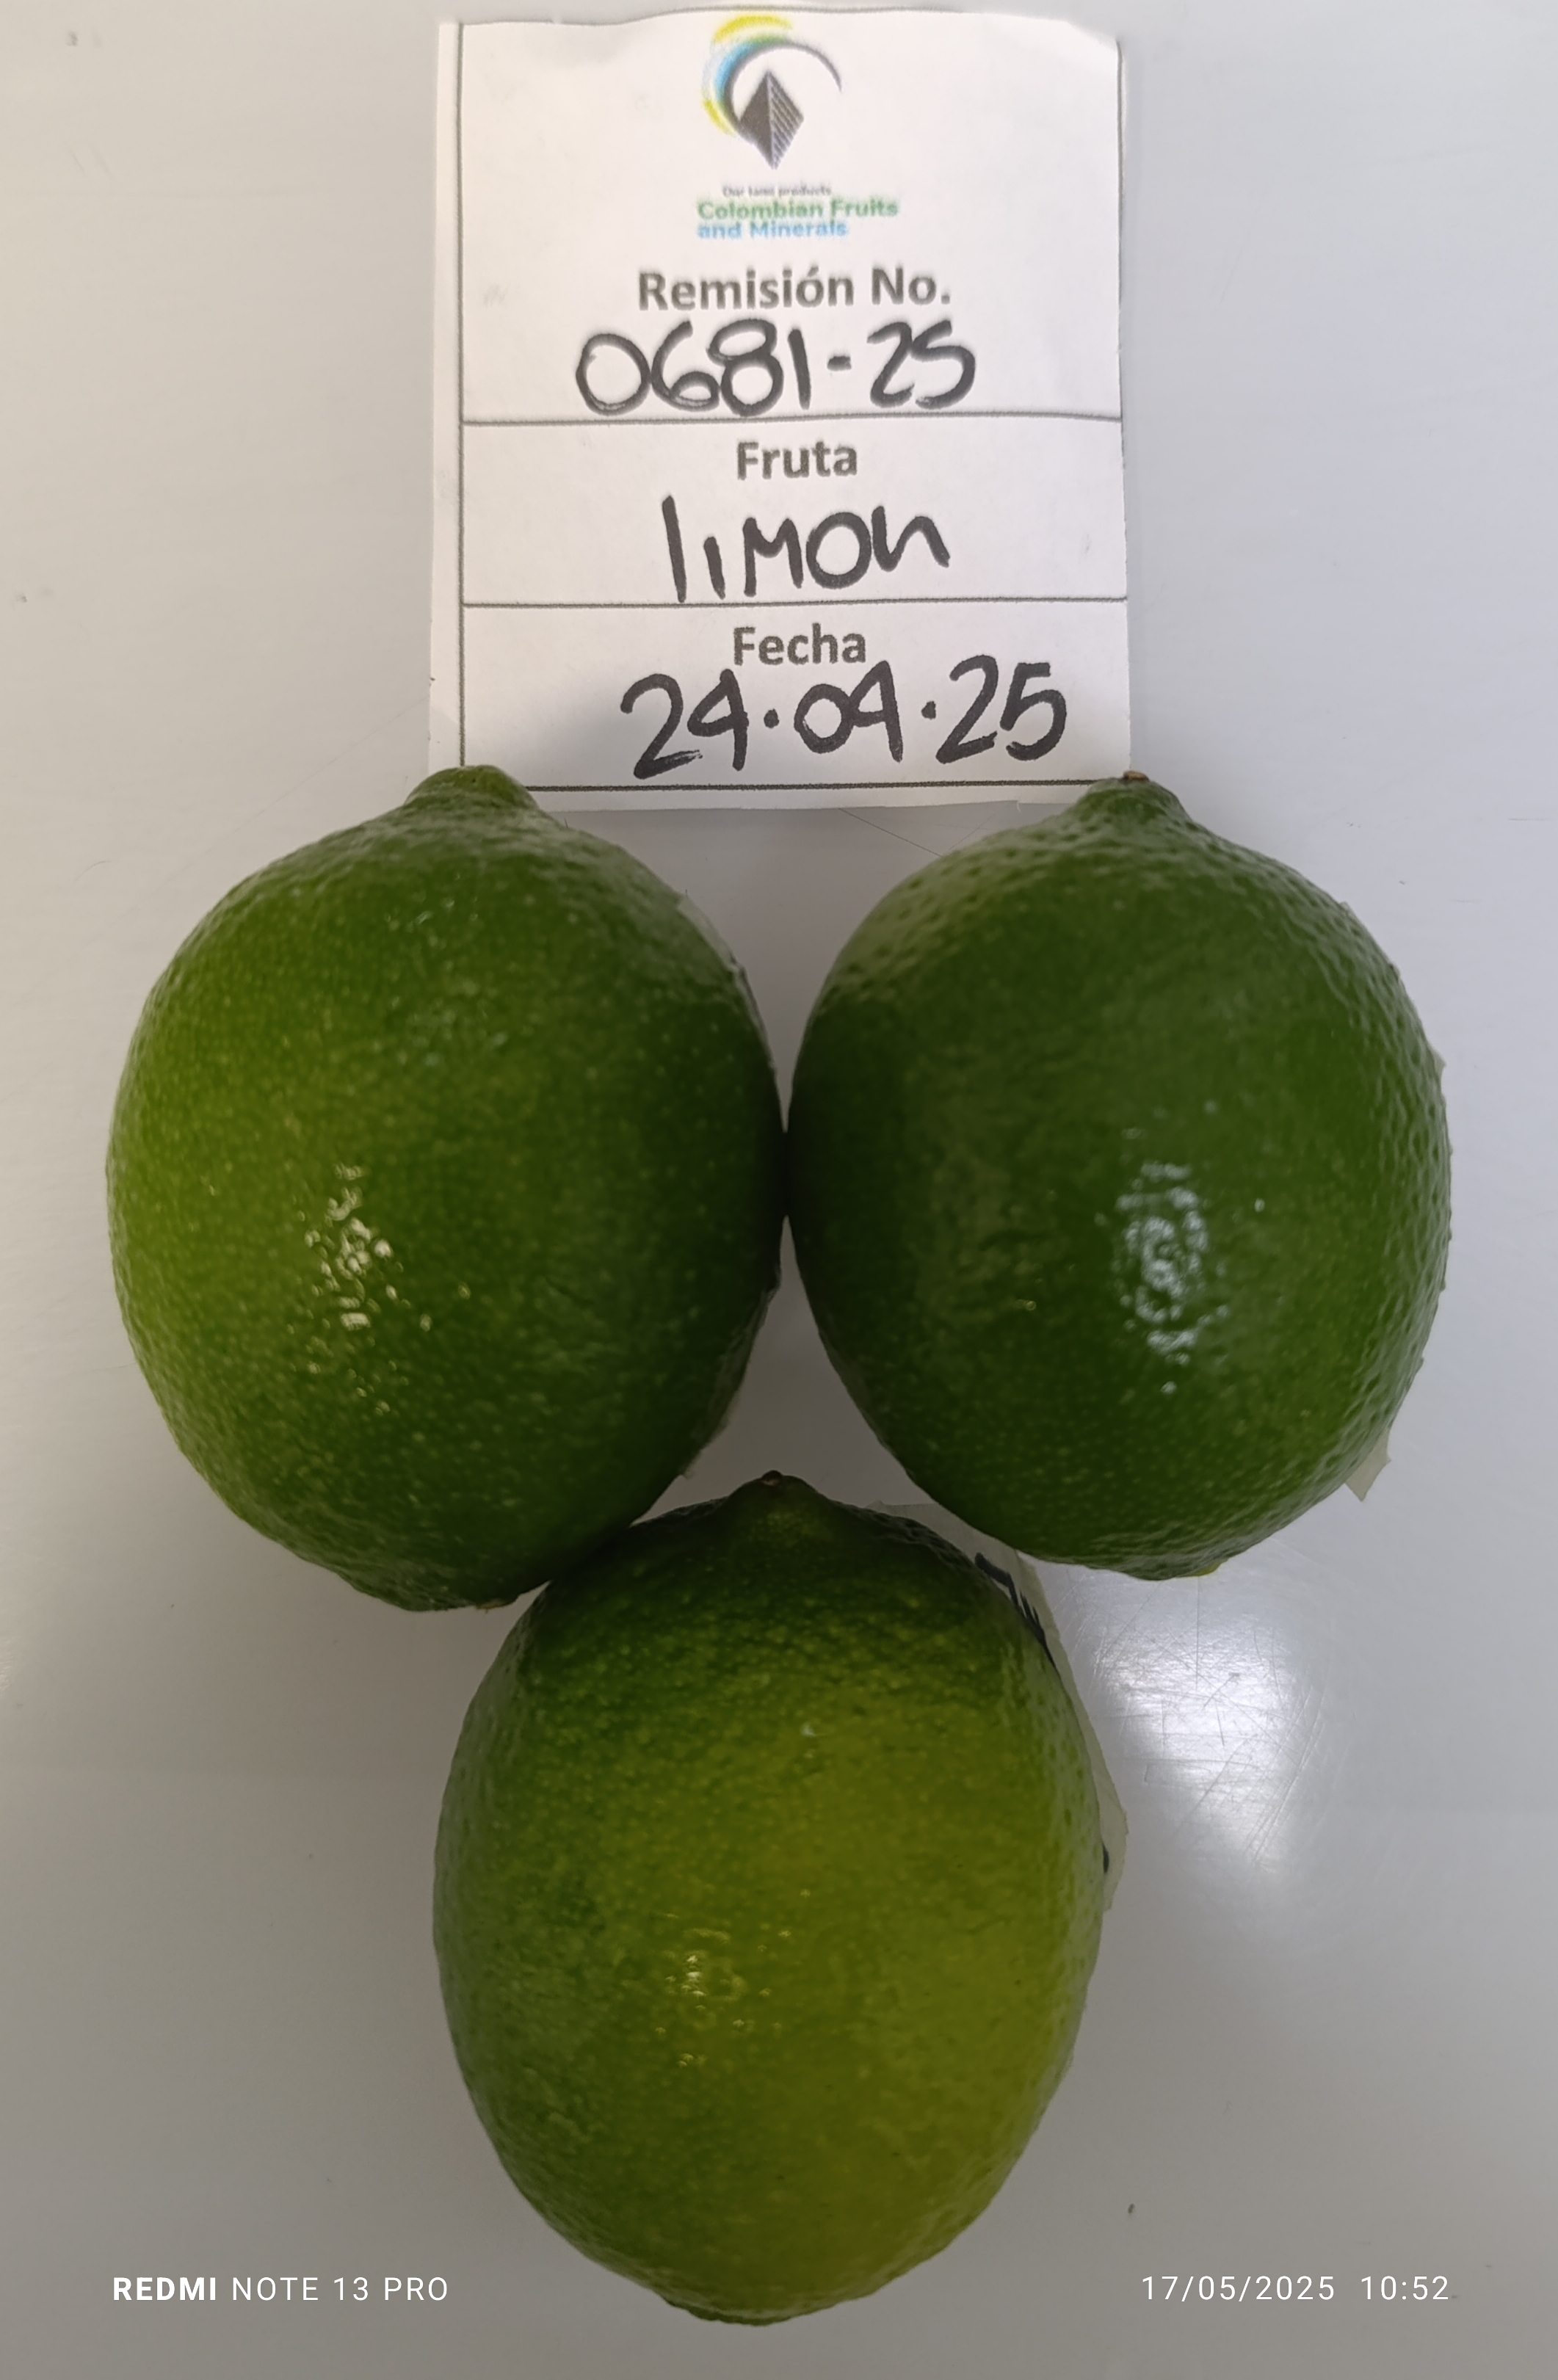 Our land products
Colombian Fruits
and Minerals
Remisión No.
0681-25
Fruta
limon
Fecha
24·04·25
REDMI NOTE 13 PRO
17/05/2025 10:52